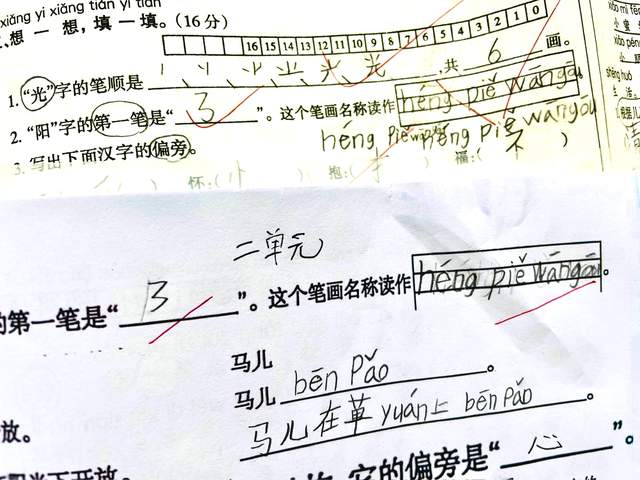 xiǎng yi xiǎng tián yi tián
、想 一 想，填 一 填。(16 分)
16 15 14 13 12 11 10 9 8 7 6 5 4 3 2 1 0
1. “光”字的笔顺是 光 ,共 6 画。
2. “阳”字的第一笔是“ 3 ”。这个笔画名称读作 héng piě wāngōu
héng piě wāngōu
3. 写出下面汉字的偏旁。 héng piě
怀:( 忄 ) 抱:( 扌 ) 福:( 礻 )
二单元
的第一笔是“ 3 ”。这个笔画名称读作 héng piě wāngōu 。
马儿
马儿 bēn Pǎo 。
马儿在草 yuán上 bēn Pǎo 。
放。
下开放。
字的偏旁是“ 心 ”。